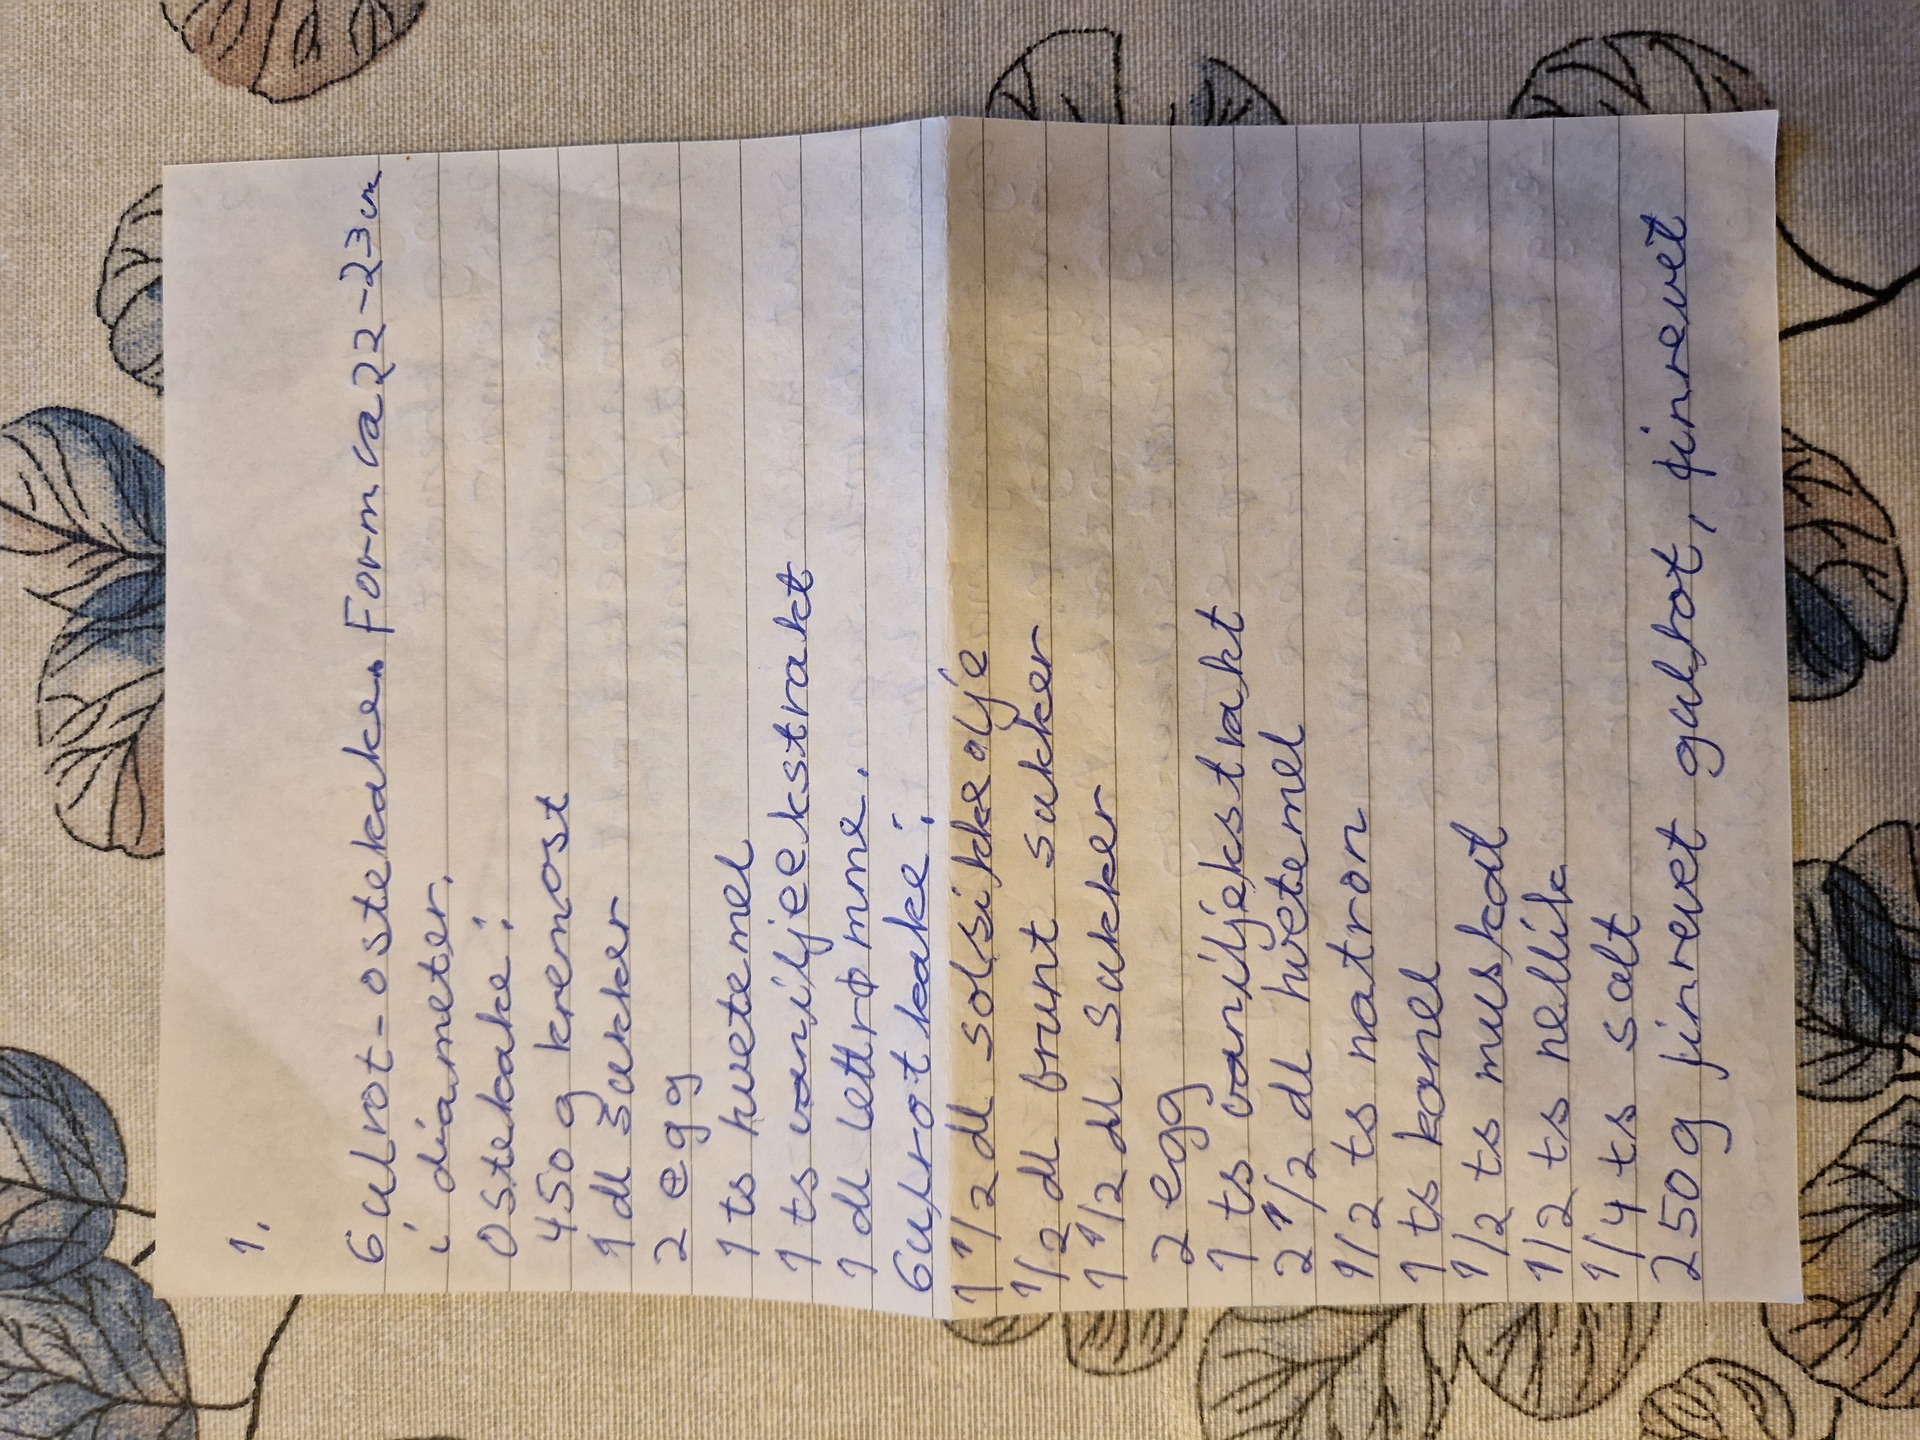 1.
Gulrot-ostekake. Form ca 22-23 cm
i diameter.
Ostekake:
450 g kremost
1 dl sukker
2 egg
1 ts hvetemel
1 ts vaniljeekstrakt
1 dl lettrømme.
Gulrotkake:
1 1/2 dl solsikkeolje
1/2 dl brunt sukker
1 1/2 dl sukker
2 egg
1 ts vaniljekstrakt
2 1/2 dl hvetemel
1/2 ts natron
1 ts kanel
1/2 ts muskat
1/2 ts nellik
1/4 ts salt
250 g finrevet gulrot, finrevet